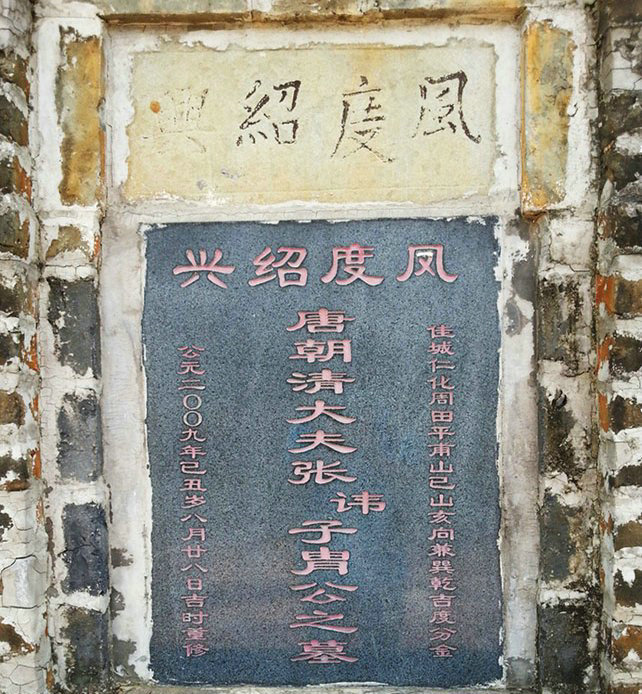 風度紹興
风度绍兴
佳城仁化周田平甫山巳山亥向兼巽乾吉度分金
唐朝清大夫张讳子胄公之墓
公元二〇〇九年己丑岁八月廿八日吉时重修